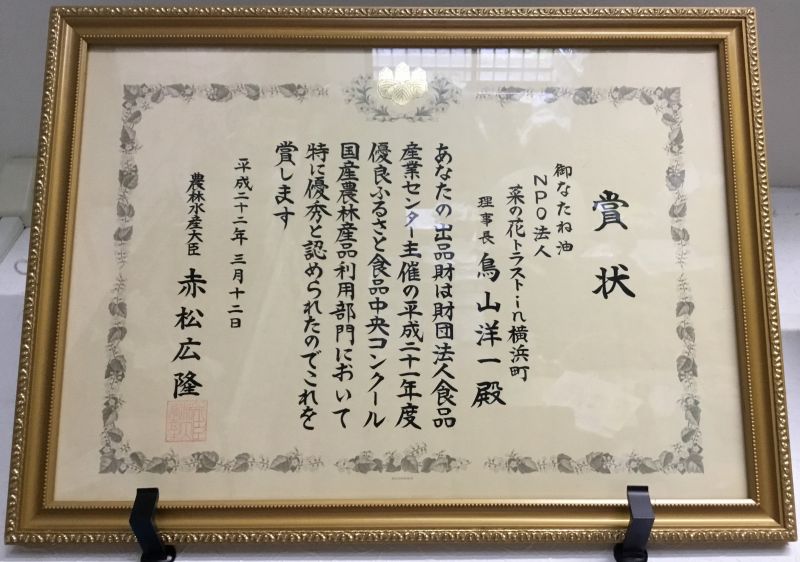 賞状
御なたね油
NPO法人
菜の花トラストin横浜町
理事長 鳥山洋一殿
あなたの出品財は財団法人食品
産業センター主催の平成二十一年度
優良ふるさと食品中央コンクール
国産農林産品利用部門において
特に優秀と認められたのでこれを
賞します
平成二十二年 三月十二日
農林水産大臣 赤松広隆